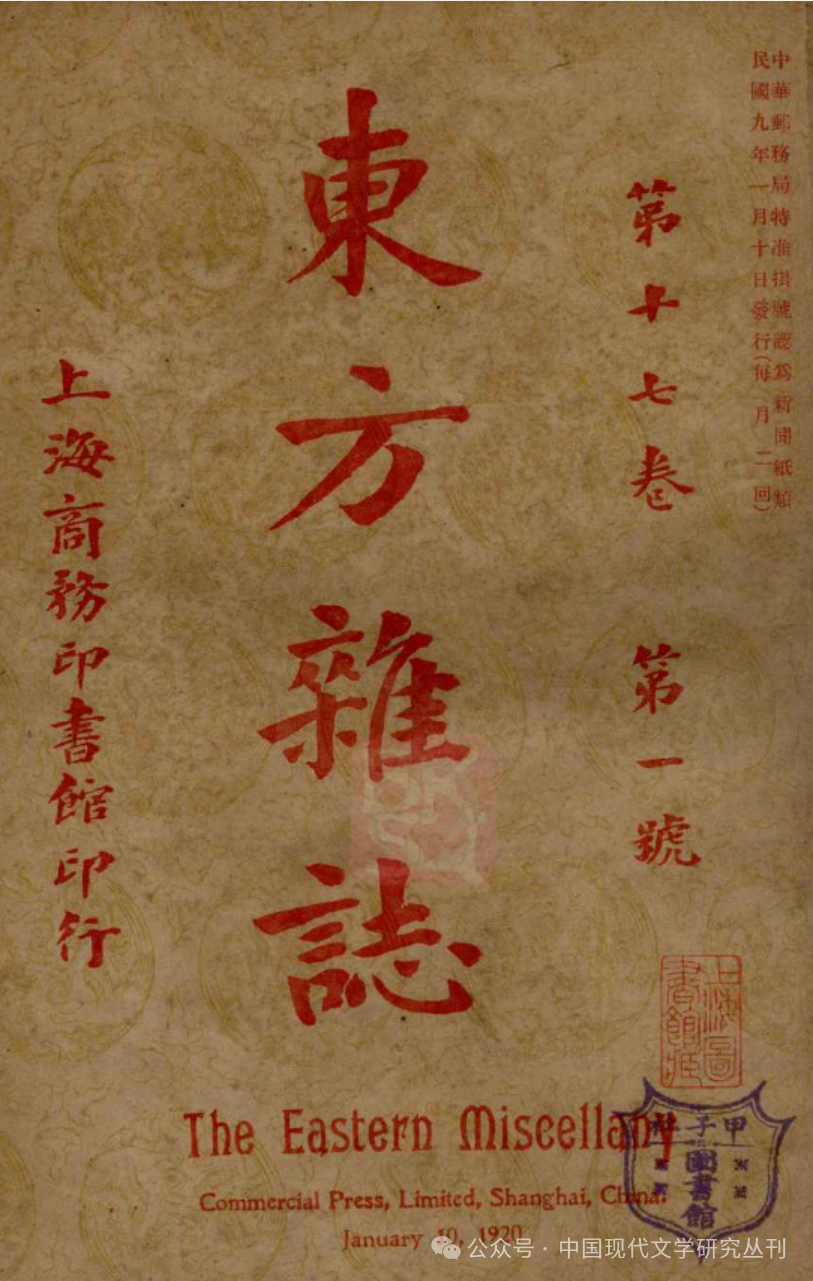 中華郵務局特准掛號認爲新聞紙類
民國九年一月十日發行(每月二回)
第十七卷 第一號
東方雜誌
上海商務印書館印行
上海圖書館藏
The Eastern Miscellany
Commercial Press, Limited, Shanghai, China.
January 10, 1920
甲子社
圖書館
公众号 · 中国现代文学研究丛刊